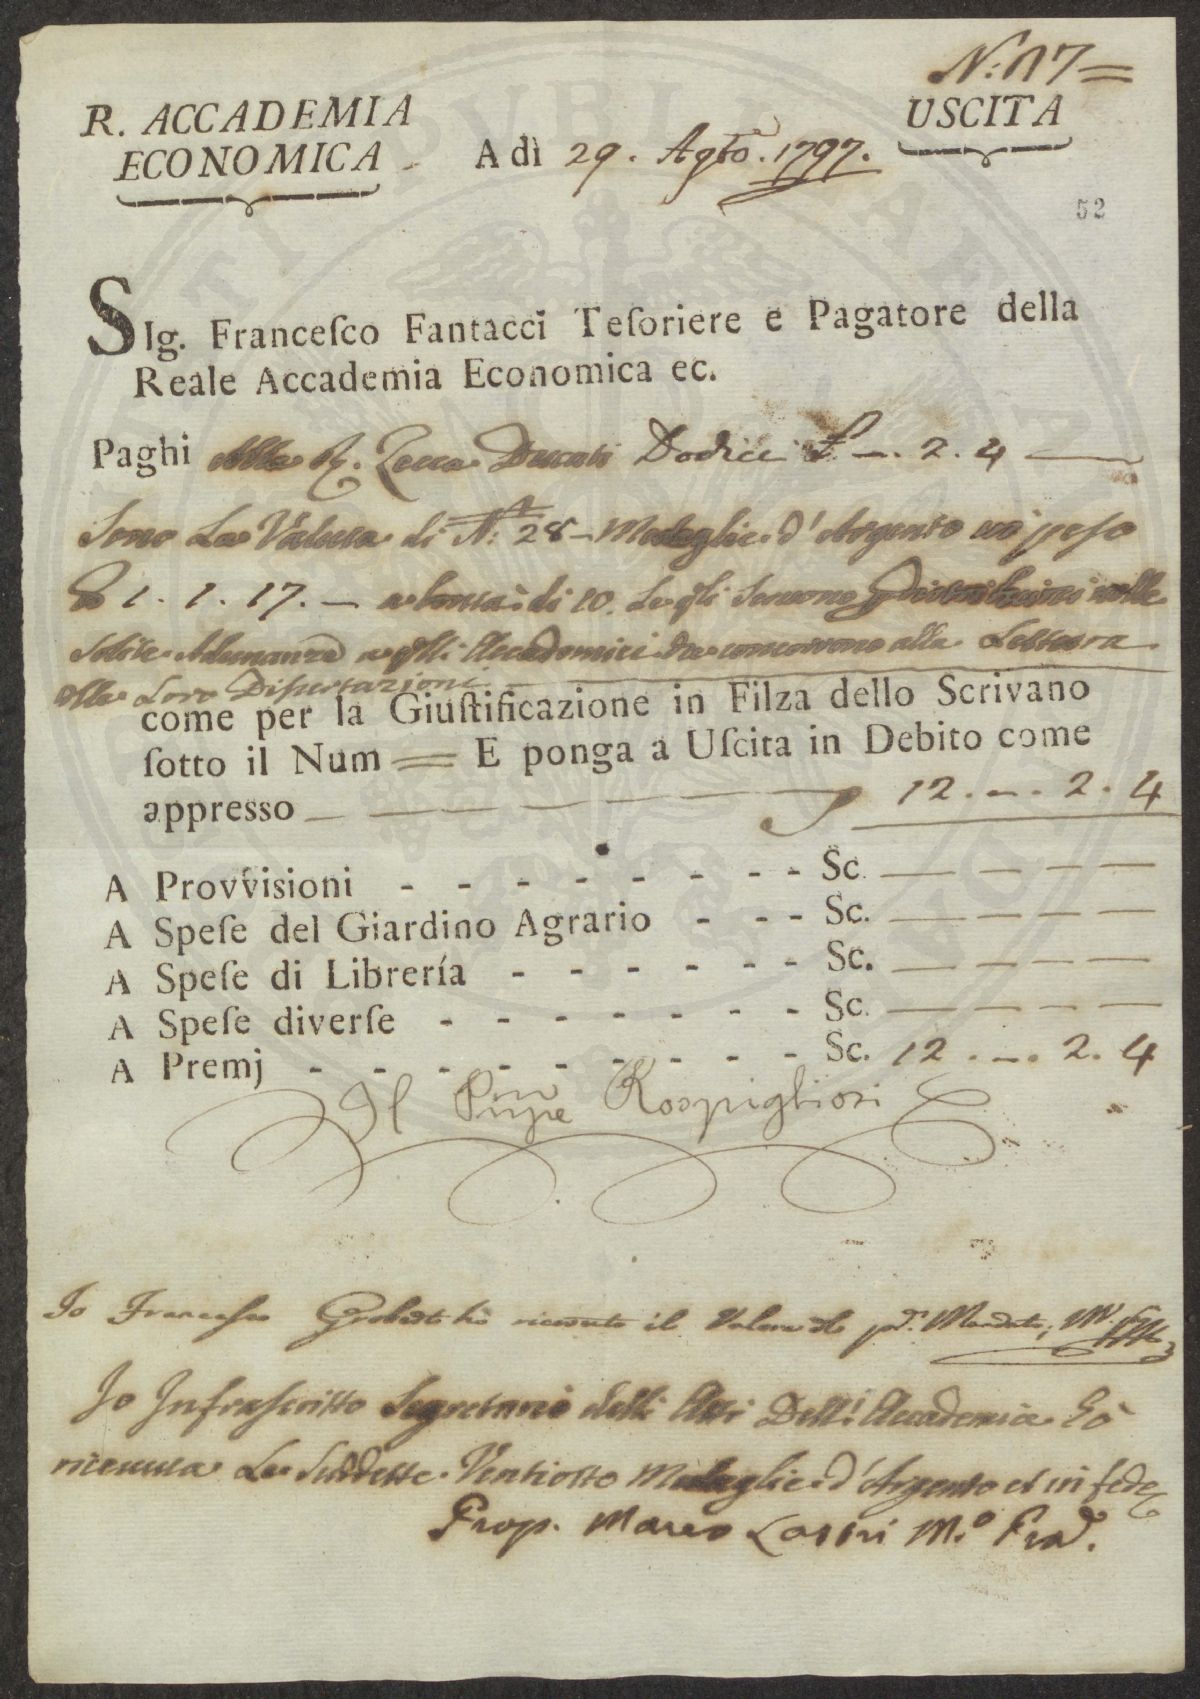 N.: 117
R. ACCADEMIA
ECONOMICA
USCITA
A dì 29. Agto. 1797.
52
SIg. Franceſco Fantacci Teſoriere e Pagatore della
Reale Accademia Economica ec.
Paghi Alla R. Zecca Ducati Dodici £ —. 2. 4
Sono La Valuta di N.: 28 - Medaglie d'Argento di peso
1. 1. 17. — a bontà di 10.
solite Adunanze Accademici che concorrono alla Lettura
delle Loro Diſsertazioni
come per la Giuſtificazione in Filza dello Scrivano
ſotto il Num = E ponga a Uſcita in Debito come
appresso 12. -. 2. 4
A Provviſioni - - - - - - - - Sc. — — — —
A Speſe del Giardino Agrario - - - Sc. — — — —
A Speſe di Librería - - - - - - Sc. — — — —
A Speſe diverſe - - - - - - - Sc. — — — —
A Premj - - - - - - - - - Sc. 12. -. 2. 4
Il Pnpe Rospigliosi
Io Francesco ho ricevuto il Valore del pd. Mandato,
Io Infraſcritto Segretario delli Atti Dell'Accademia hò
ricevuta Le Suddette Ventiotto Medaglie d'Argento et in fede
Prop. Marco Lastri Mo. Prod.